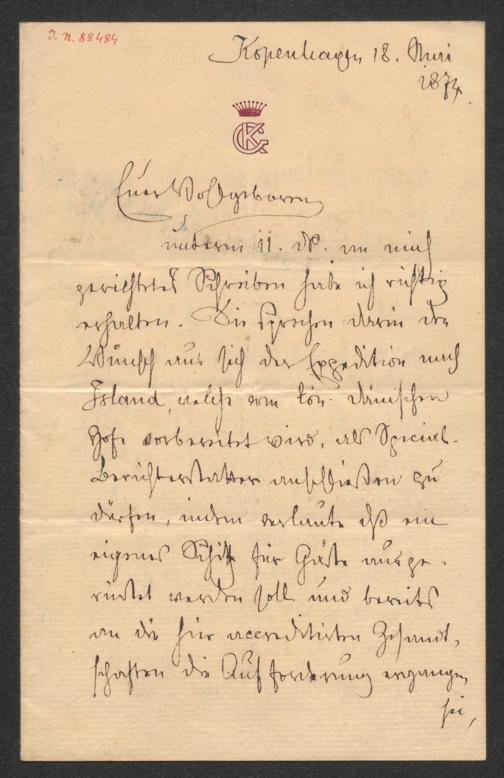 I. N. 88484
Kopenhagen 18. Mai
1874.
CK
Euer Wohlgeboren
unterm 11. d. M. an mich
gerichtetes Schreiben habe ich richtig
erhalten. Sie sprechen darin den
Wunsch aus sich der Expedition nach
Island, welche vom kön. dänischen
Hofe vorbereitet wird, als Special-
Berichterstatter anschließen zu
dürfen, indem verlaute daß ein
eigenes Schiff für Gäste ausge-
rüstet werden soll und bereits
an die hier accreditirten Gesandt-
schaften die Aufforderung ergangen
sei,